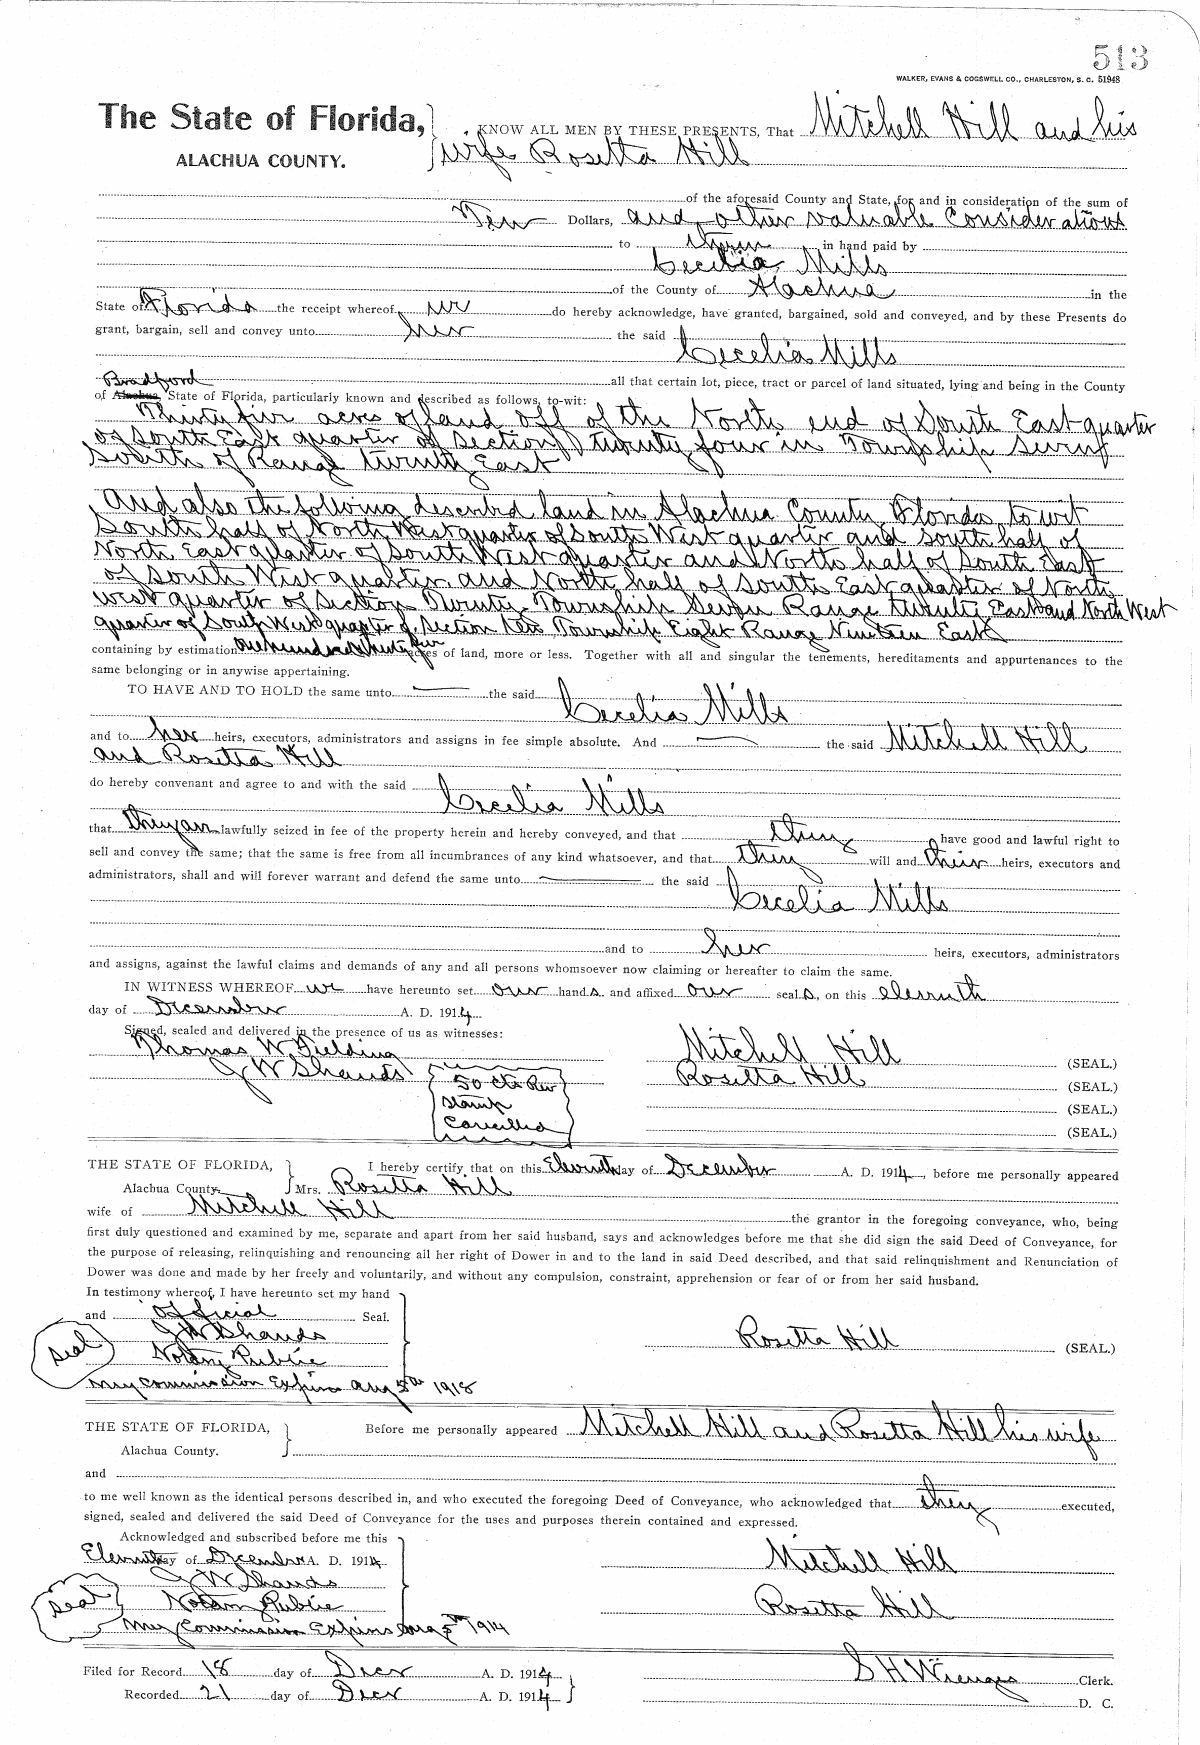 513
WALKER, EVANS & COGSWELL CO., CHARLESTON, S. C. 51948
The State of Florida, KNOW ALL MEN BY THESE PRESENTS, That Mitchell Hill and his
ALACHUA COUNTY. wife Rosetta Hill
of the aforesaid County and State, for and in consideration of the sum of
Ten Dollars, and other valuable Considerations
to them in hand paid by
Cecilia Mills
of the County of Alachua in the
State of Florida the receipt whereof we do hereby acknowledge, have granted, bargained, sold and conveyed, and by these Presents do
grant, bargain, sell and convey unto her the said Cecelia Mills
Bradford all that certain lot, piece, tract or parcel of land situated, lying and being in the County
of Alachua State of Florida, particularly known and described as follows, to-wit:
Thirty five acres of land off of the North end of South East quarter
of South East quarter of Section twenty four in Township Seven
South of Range twenty East
And also the following described land in Alachua County, Florida, to wit
South half of North West quarter of South West quarter and South half of
North East quarter of South West quarter and North half of South East
of South West quarter and North half of South East quarter of North
West quarter of Section Twenty Township Seven Range twenty East and North West
quarter of South West quarter of Section Township Eight Range Nineteen East
containing by estimation One hundred & thirty five acres of land, more or less. Together with all and singular the tenements, hereditaments and appurtenances to the
same belonging or in anywise appertaining.
TO HAVE AND TO HOLD the same unto the said Cecelia Mills
and to her heirs, executors, administrators and assigns in fee simple absolute. And the said Mitchell Hill
and Rosetta Hill
do hereby convenant and agree to and with the said Cecelia Mills
that they are lawfully seized in fee of the property herein and hereby conveyed, and that they have good and lawful right to
sell and convey the same; that the same is free from all incumbrances of any kind whatsoever, and that they will and their heirs, executors and
administrators, shall and will forever warrant and defend the same unto the said Cecelia Mills
and to her heirs, executors, administrators
and assigns, against the lawful claims and demands of any and all persons whomsoever now claiming or hereafter to claim the same.
IN WITNESS WHEREOF we have hereunto set our hands and affixed our seals, on this eleventh
day of December A. D. 1914
Signed, sealed and delivered in the presence of us as witnesses:
Thomas W Fielding Mitchell Hill (SEAL.)
J W Shands Rosetta Hill (SEAL.)
50 cts Rev (SEAL.)
Stamp
Cancelled (SEAL.)
THE STATE OF FLORIDA, I hereby certify that on this Eleventh day of December A. D. 1914, before me personally appeared
Alachua County. Mrs. Rosetta Hill
wife of Mitchell Hill the grantor in the foregoing conveyance, who, being
first duly questioned and examined by me, separate and apart from her said husband, says and acknowledges before me that she did sign the said Deed of Conveyance, for
the purpose of releasing, relinquishing and renouncing all her right of Dower in and to the land in said Deed described, and that said relinquishment and Renunciation of
Dower was done and made by her freely and voluntarily, and without any compulsion, constraint, apprehension or fear of or from her said husband.
In testimony whereof, I have hereunto set my hand
and official Seal.
J W Shands Rosetta Hill (SEAL.)
Seal Notary Public
My Commission Expires Aug 5th 1918
THE STATE OF FLORIDA, Before me personally appeared Mitchell Hill and Rosetta Hill his wife
Alachua County.
and
to me well known as the identical persons described in, and who executed the foregoing Deed of Conveyance, who acknowledged that they executed,
signed, sealed and delivered the said Deed of Conveyance for the uses and purposes therein contained and expressed.
Acknowledged and subscribed before me this
Eleventh day of December A. D. 1914 Mitchell Hill
J W Shands
Seal Notary Public Rosetta Hill
My Commission Expires Aug 5th 1914
Filed for Record 18 day of Decr A. D. 1914 S H Wienges Clerk.
Recorded 21 day of Decr A. D. 1914 D. C.